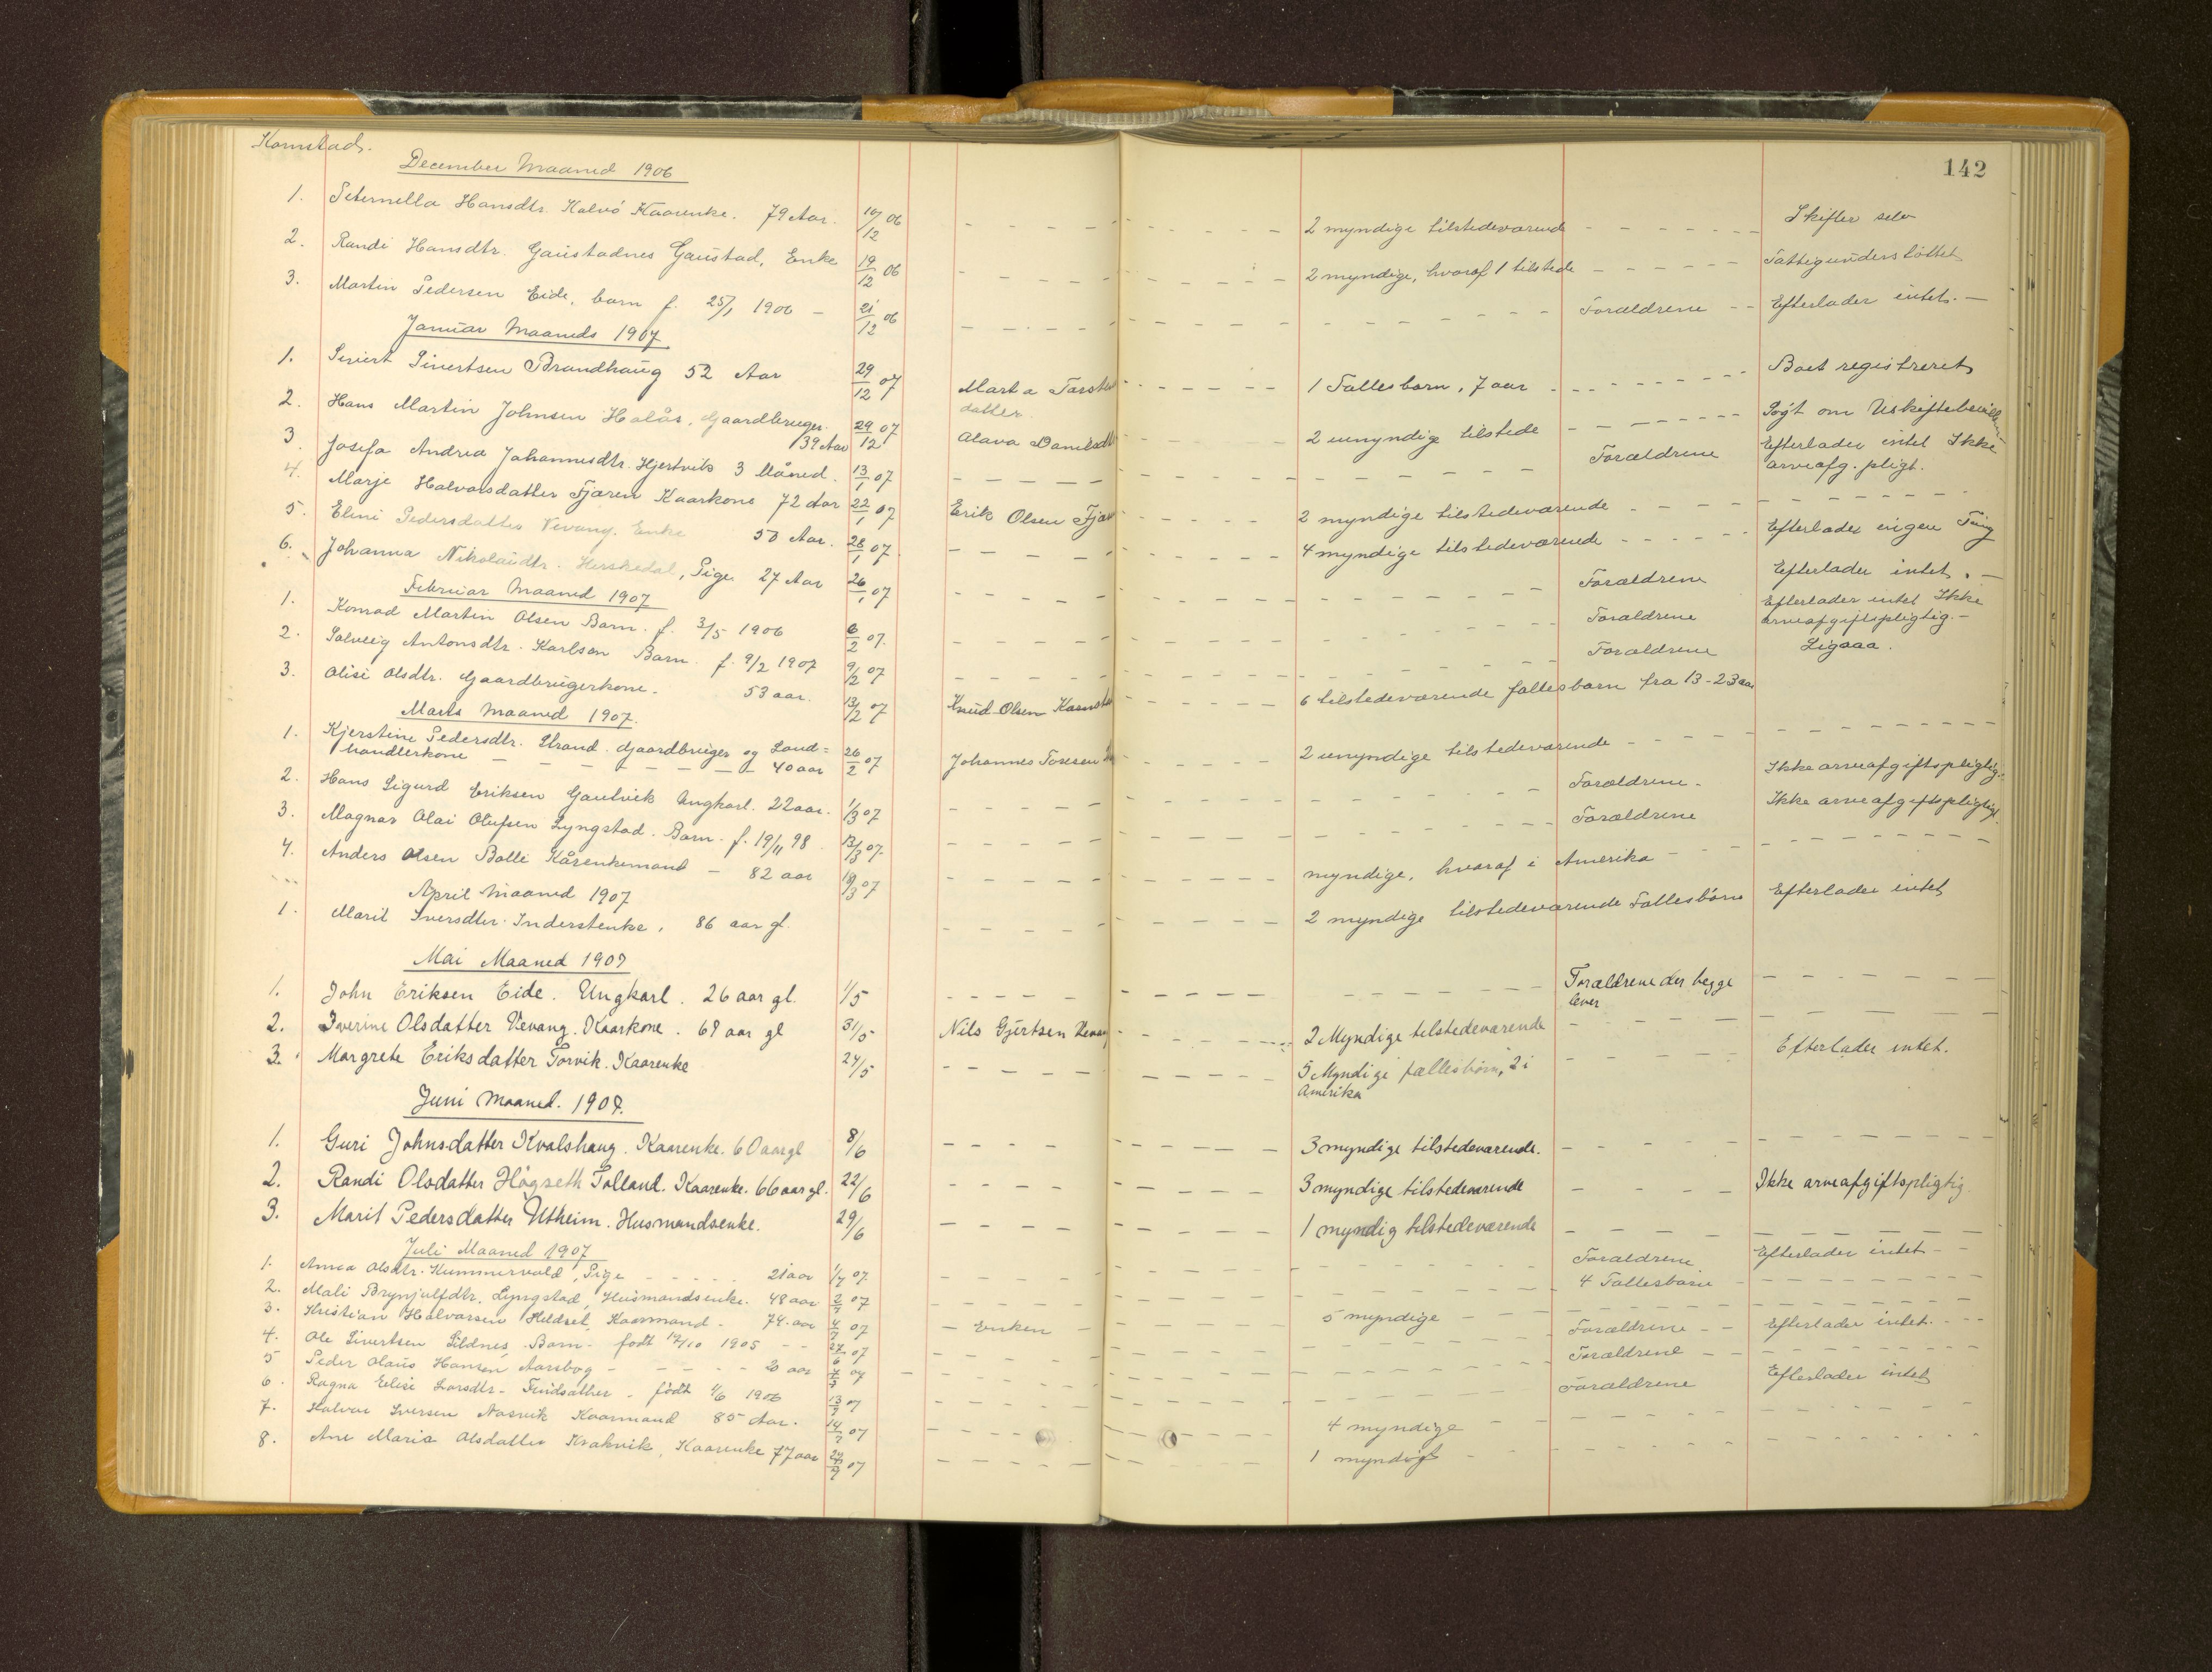 Kornstad.
142
December Maaned 1906
1. Peternella Hansdtr. Kalvö Kaarenke. 79 Aar. 10/12 06 2 myndige tilstedeværende Skifter selv
2. Randi Hansdtr. Gaustadnes Gaustad, Enke 19/12 06 2 myndige, hvoraf 1 tilstede Fattigunderstöttet
3. Martin Pedersen Eide, barn f. 25/1 1906 21/12 06 Forældrene Efterlader intet.
Januar Maaneds 1907
1. Sivert Sivertsen Brandhaug 52 Aar 29/12 07 Marta 1 Fallesbarn, 7 aar Boet registreret
datter.
2. Hans Martin Johnsen Halås, Gaardbruger. 29/12 07 2 umyndige tilstede Sögt om
39 Aar
3. Josefa Andrea Johannesdtr. Hjertvik 3 Måned. 13/1 07 Forældrene Efterlader intet Ikke
arveafg. pligt.
4. Marje Halvorsdatter Fjæren Kaarkone 72 Aar 22/1 07 Erik Olsen 2 myndige tilstedeværende
5. Elini Pedersdatter Vevang. Enke 50 Aar. 28/1 07 4 myndige tilstedeværende Efterlader ingen Ting
6. Johanna Nikolaidtr. Herskedal, Pige 27 Aar 26/1 07 Forældrene Efterlader intet.
Februar Maaned 1907
1. Konrad Martin Olsen Barn. f. 3/5 1906 6/2 07. Forældrene Efterlader intet Ikke
arveafgiftspligtig.
2. Solveig Antonsdtr. Karlsen Barn. f. 9/2 1907 9/2 07 Forældrene Ligaaa.
3. Olise Olsdtr. Gaardbrugerkone. 53 aar. 13/2 07 Knud Olsen 6 tilstedeværende fallesbarn fra 13-23 aar
Marts Maaned 1907.
1. Kjerstine Pedersdtr. Strand. Gaardbruger og Land=
handlerkone 40 aar 26/2 07 Johannes 2 umyndige tilstedeværende
2. Hans Sigurd Eriksen Gautvik Ungkarl. 22 aar. 1/3 07 Forældrene. Ikke arveafgiftspligtig.
3. Magnar Olai Olufsen Lyngstad. Barn. f. 19/11 98. 13/3 07. Forældrene Ikke arveafgiftspligtig.
4. Anders Olsen Bolle Kårenkemand 82 aar 19/3 07 myndige, hvoraf i Amerika
April Maaned 1907
1. Marit Iversdtr. Inderstenke, 86 aar gl. 2 myndige tilstedeværende Fallesbörn Efterlader intet
Mai Maaned 1907
1. John Eriksen Eide. Ungkarl. 26 aar gl. 1/5 Forældrene der begge
lever
2. Iverine Olsdatter Vevang. Kaarkone. 69 aar gl 31/5 Nils Gjertsen 2 Myndige tilstedeværende
3. Margrete Eriksdatter Torvik. Kaarenke 24/5 5 Myndige fællesbörn, 2 i
Amerika Efterlader intet.
Juni Maaned. 1907.
1. Guri Johnsdatter Kvalshaug. Kaarenke. 60 aar gl 8/6 3 myndige tilstedeværende.
2. Randi Olsdatter Högseth Tolland. Kaarenke. 66 aar gl. 22/6 3 myndige tilstedeværende Ikke arveafgiftspligtig
3. Marit Pedersdatter Utheim. Husmandsenke. 29/6 1 myndig tilstedeværende
Juli Maaned 1907
1. Anna Olsdtr. Kummervold, Pige 21 aar 1/7 07 Forældrene Efterlader intet
2. Mali Brynjulfdtr. Lyngstad, Husmandsenke. 48 aar 2/7 07 4 Fallesbarn
3. Kristian Halvorsen Heldset, Kaarmand. 74 aar 4/7 07 Enken 5 myndige
4. Ole Sivertsen Sildnes. Barn. födt 14/10 1905 27/6 07 Forældrene Efterlader intet.
5 Peder Olaus Hansen Aarsbog 20 aar 4/7 07 Forældrene
6. Ragna Eelise Larsdtr. födt 4/6 1906 13/7 07 Forældrene Efterlader intet
7. Halvor Iversen Nasvik Kaarmand 85 Aar. 14/7 07 4 myndige
8. Ane Maria Olsdatter Krakvik, Kaarenke 77 aar 24/7 07 1 myndigt